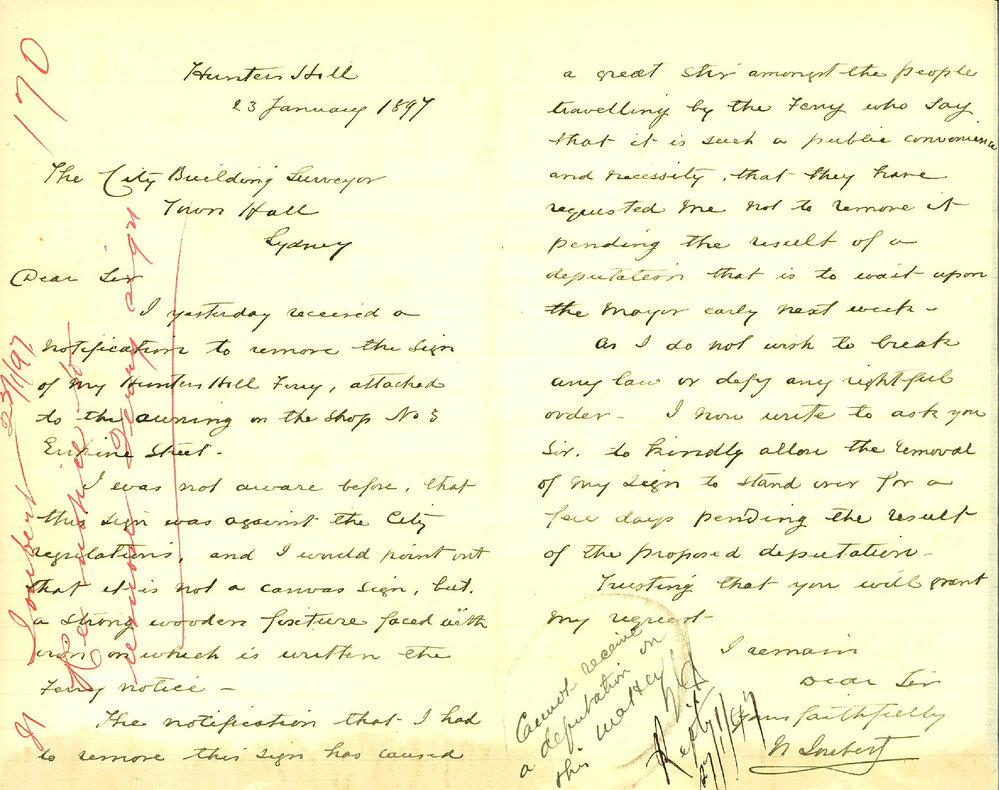 170
Hunters Hill
23 January 1897
The City Building Surveyor
Town Hall
Sydney
Dear Sir
I yesterday received a
notification to remove the sign
of my Hunters Hill Ferry, attached
to the awning on the Shop No 3
Erskine Street.
I was not aware before, that
this sign was against the City
regulations, and I would point out
that it is not a canvas sign, but,
a strong wooden fixture faced with
iron on which is written the
Ferry notice -
The notification that I had
to remove this sign has caused
a great stir amongst the people
travelling by the Ferry who say
that it is such a public convenience
and necessity, that they have
requested me not to remove it
pending the result of a
deputation that is to wait upon
the Mayor early next week -
As I do not wish to break
any law or defy any rightful
order - I now write to ask you
Sir, to kindly allow the removal
of my sign to stand over for a
few days pending the result
of the proposed deputation -
Trusting that you will grant
my request -
I remain
Dear Sir
Yours faithfully
N Joubert
N Joubert 23/1/97
Re notice to
remove Ferry sign
Cannot receive
a deputation on
this matter
Reply